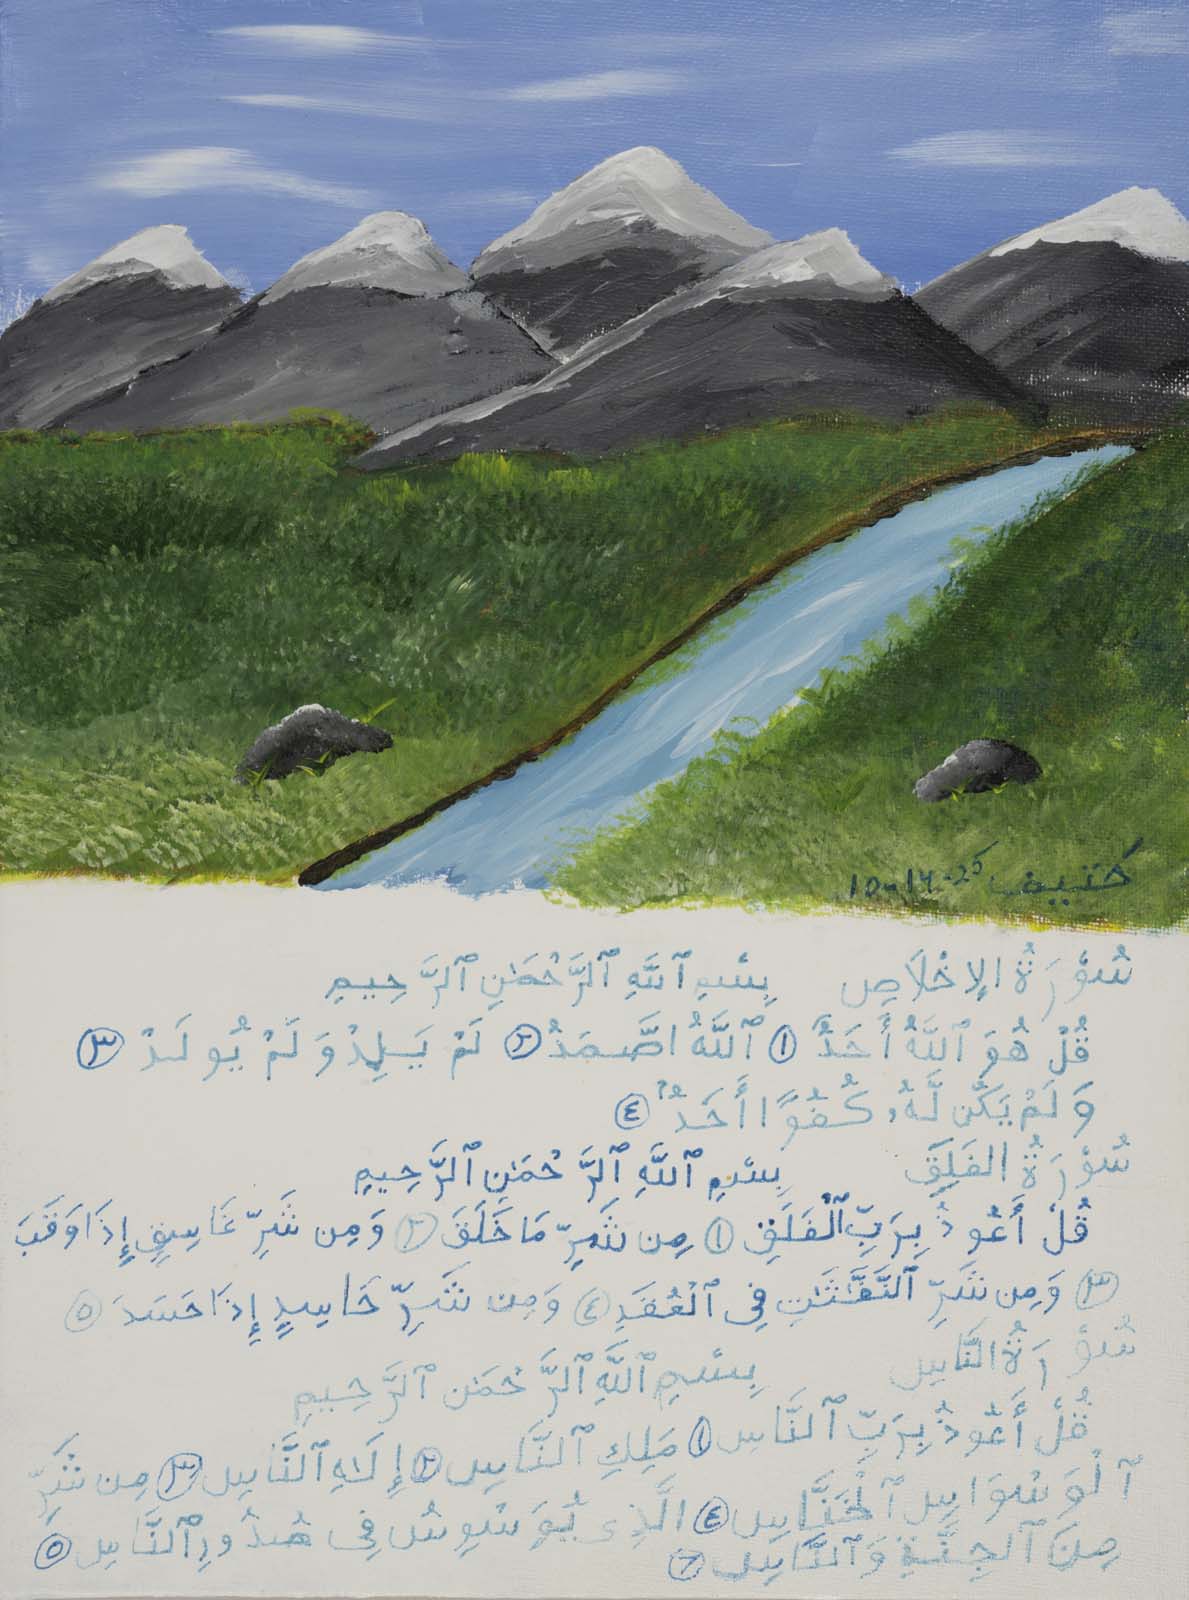 حنيف 10-14-25
سُوْرَةُ الإِخْلَاصِ بِسْمِ ٱللَّهِ ٱلرَّحْمَٰنِ ٱلرَّحِيمِ
قُلْ هُوَ ٱللَّهُ أَحَدٌ ١ ٱللَّهُ اصَّمَدُ ٢ لَمْ يَلِدْ وَلَمْ يُولَدْ ٣
وَلَمْ يَكُن لَّهُۥ كُفُوًا أَحَدٌۢ ٤
سُوْرَةُ الفَلَقِ بِسْمِ ٱللَّهِ ٱلرَّحْمَٰنِ ٱلرَّحِيمِ
قُلْ أَعُوذُ بِرَبِّ ٱلْفَلَقِ ١ مِن شَرِّ مَا خَلَقَ ٢ وَمِن شَرِّ غَاسِقٍ إِذَا وَقَبَ
٣ وَمِن شَرِّ ٱلنَّفَّٰثَٰتِ فِى ٱلْعُقَدِ ٤ وَمِن شَرِّ حَاسِدٍ إِذَا حَسَدَ ٥
سُوْرَةُ النَّاسِ
بِسْمِ ٱللَّهِ ٱلرَّحْمَٰن ٱلرَّحِيمِ
قُلْ أَعُوذُ بِرَبِّ ٱلنَّاسِ ١ مَلِكِ ٱلنَّاسِ ٢ إِلَٰهِ ٱلنَّاسِ ٣ مِن شَرِّ
ٱلْوَسْوَاسِ ٱلْخَنَّاسِ ٤ الَّذِى يُوَسْوِسُ فِى صُدُورِ ٱلنَّاسِ ٥
مِنَ ٱلْجِنَّةِ وَٱلنَّاسِ ٦